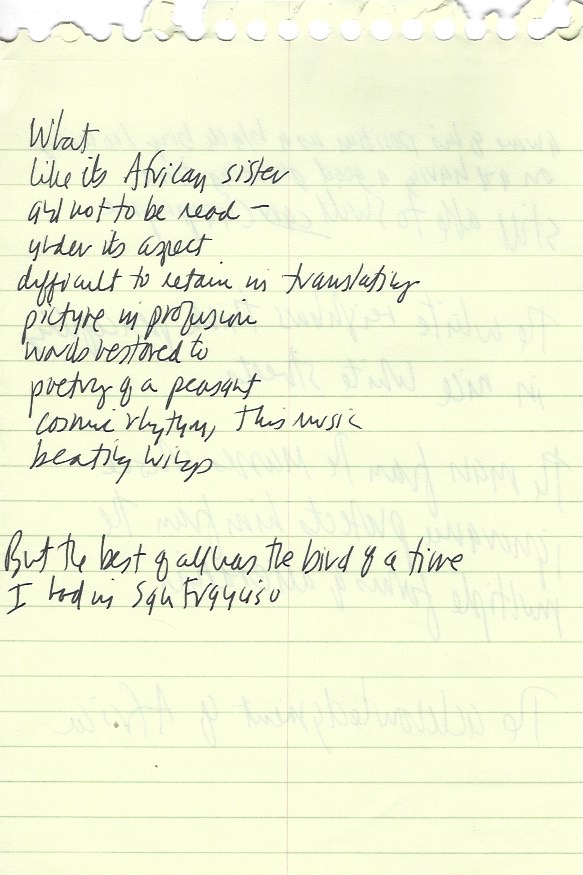 What
like its African sister
and not to be read –
under its aspect
difficult to retain in translating
picture in profusion
words restored to
poetry of a peasant
cosmic rhythm, this music
beating wings
But the best of all was the bird of a time
I had in San Francisco